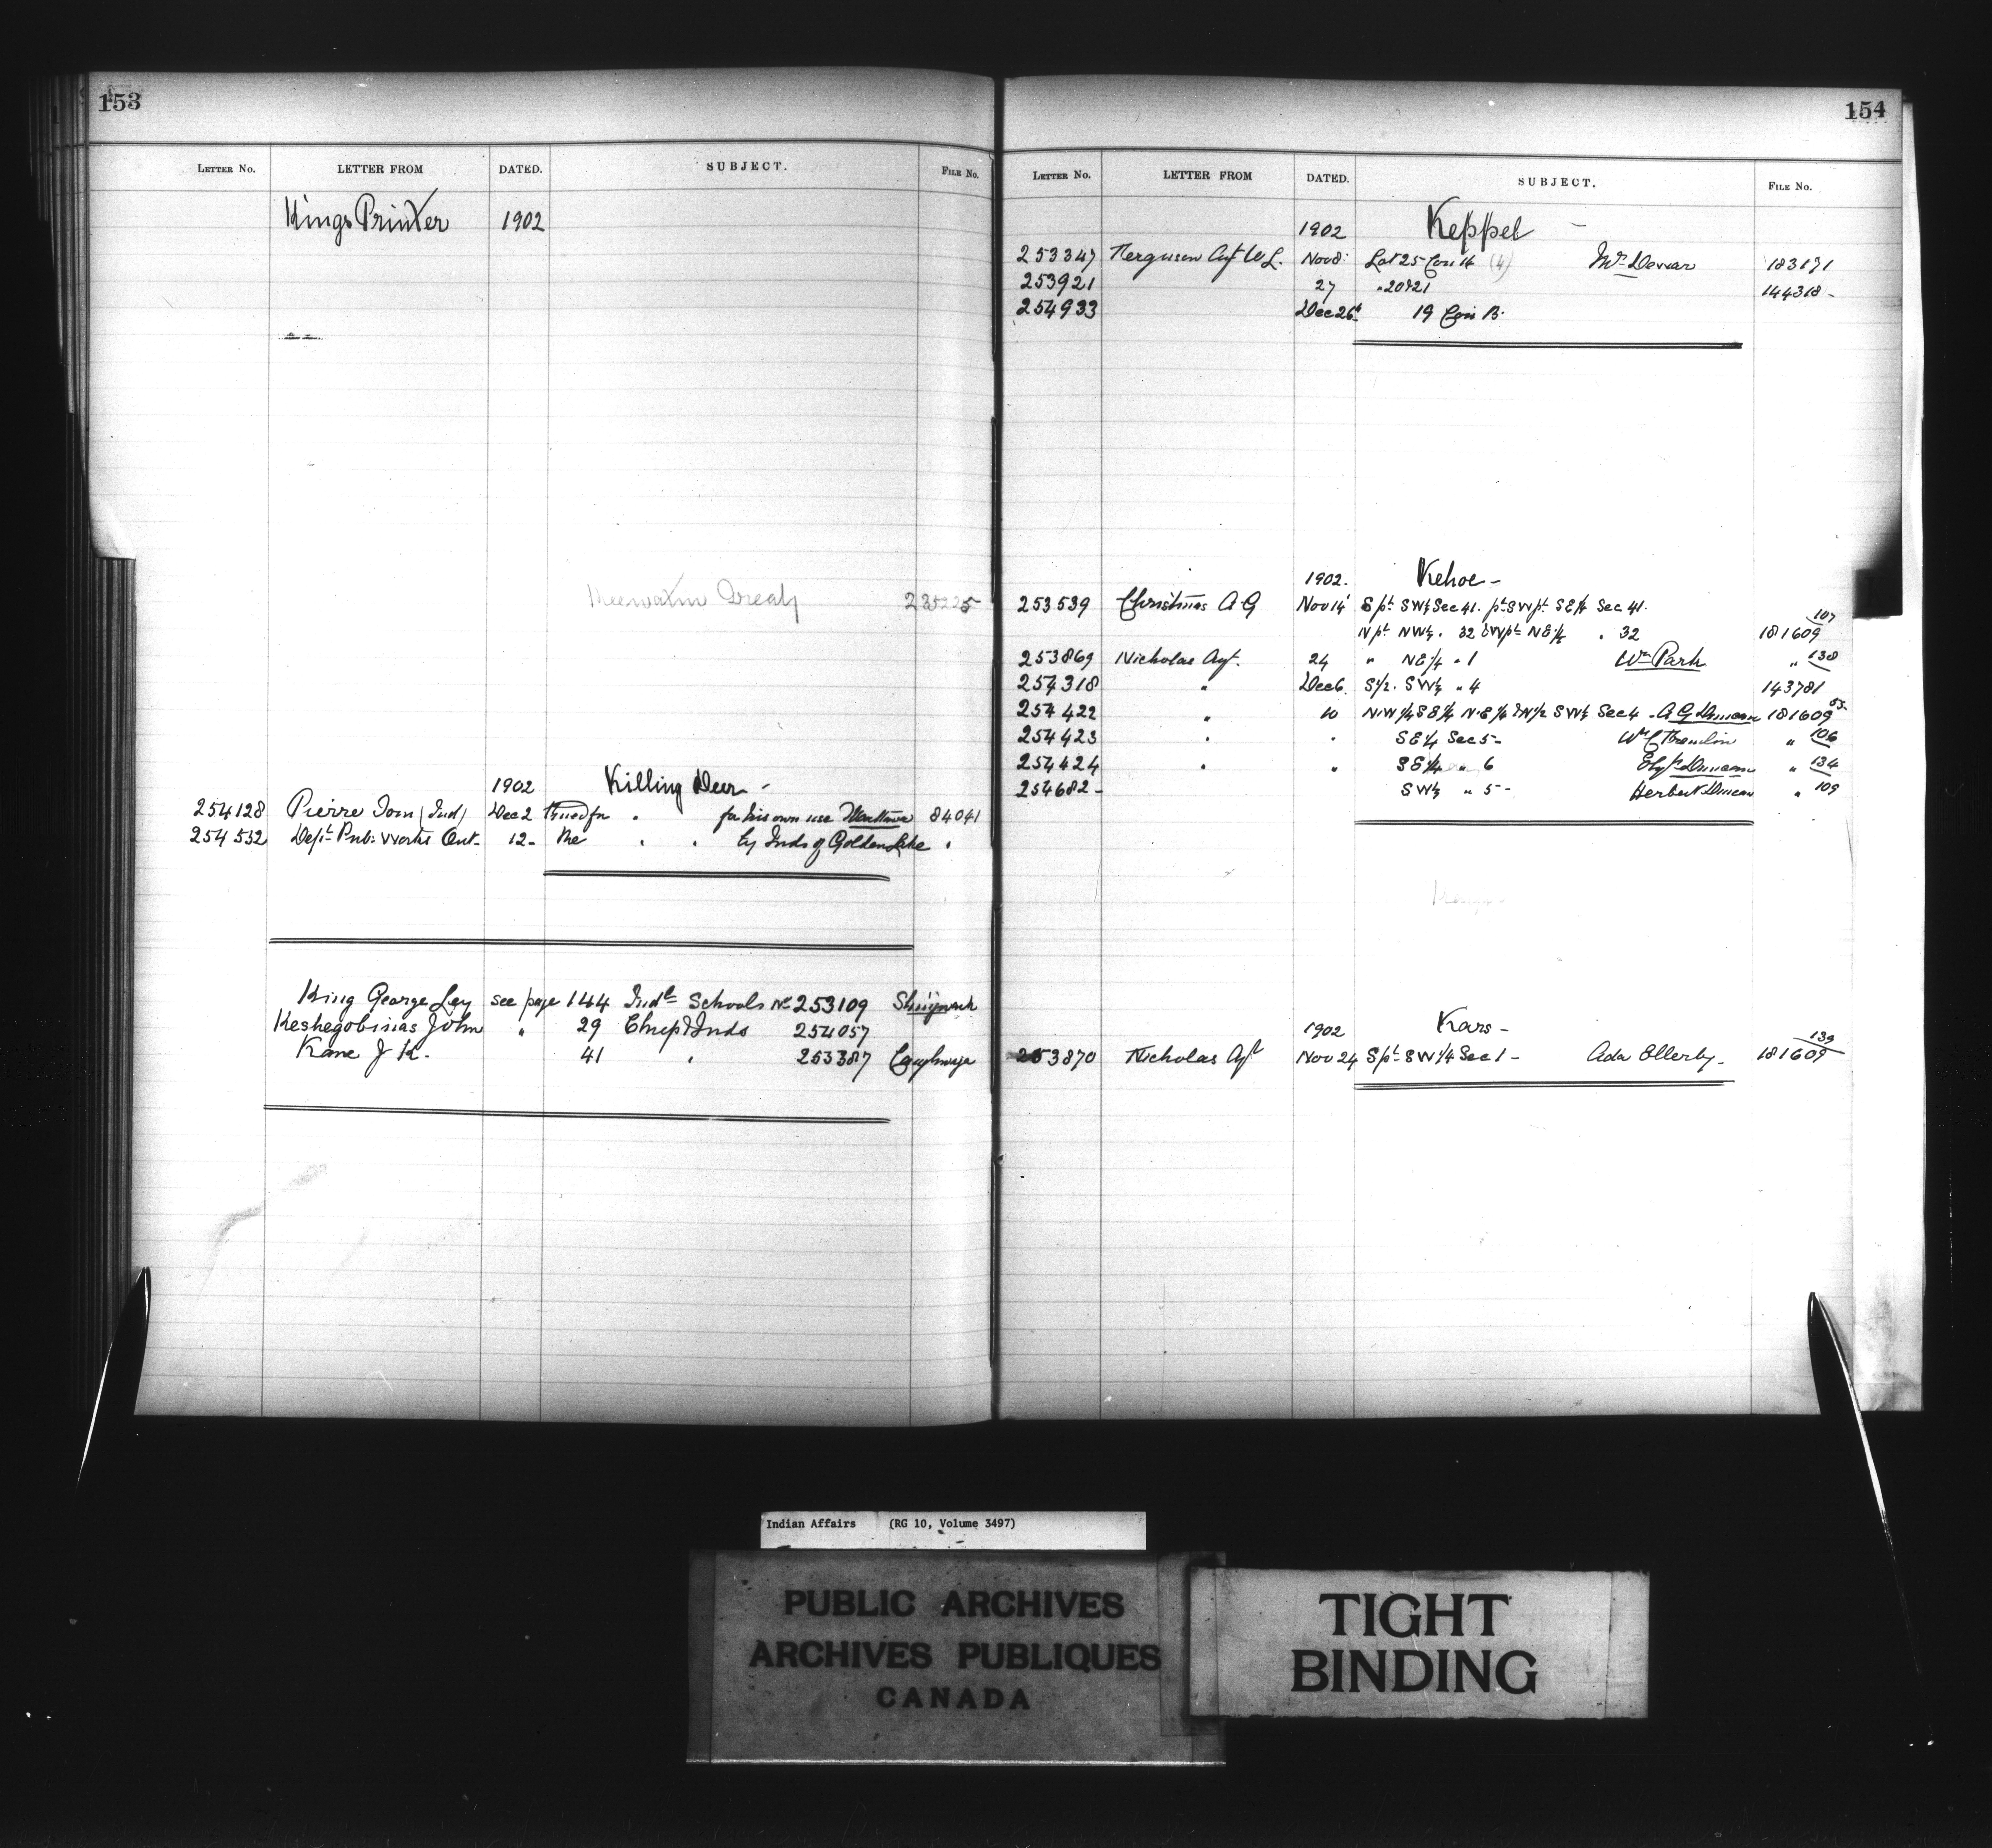 153
LETTER No. LETTER FROM DATED. SUBJECT. FILE No.
Kings Printer 1902
Keewatin Treaty 235225
1902 Killing Deer -
254128 Pierre Tom (Ind) Dec 2 for his own use 84041
254532 Dept. Pub: Works Ont. 12 - Re " " by Inds of Golden Lake "
King George Ley see page 144 Indl Schools No 253109 Shingwauk
Keshegobinas John " 29 254057
Kane J K. 41 " 253387 Caughnawaga
154
LETTER No. LETTER FROM DATED. SUBJECT. FILE No.
1902 Keppel -
253347 Ferguson Agt W L. Nov 8 Lot 25 Con 14 (4) Dewar 183171
253921 27 " 20 & 21 144318 -
254933 Dec 26 19 Con B.
1902. Kehoe -
253539 Christmas A G Nov 14 S pt SW¼ Sec 41. pt SW pt SE¼ Sec 41.
N pt NW¼ . 32 & W pt NE¼ . 32 181609 107
253869 Nicholas Agt. 24 " NE¼ " 1 Wm Park " 138
254318 " Dec 6. S½. SW¼ " 4 143781
254422 " 10 NW¼ SE¼ NE¼ & N½ SW¼ Sec 4 - A G Duncan 181609
254423 " " SE¼ Sec 5 - " 106
254424 " " SE¼ " 6 Duncan " 134
254682 - SW¼ " 5 - Herbert Duncan " 109
1902 Kars -
253870 Nicholas Agt Nov 24 S pt SW¼ Sec 1 - Ada Ellerby - 181609 139
Indian Affairs (RG 10, Volume 3497)
PUBLIC ARCHIVES
ARCHIVES PUBLIQUES
CANADA
TIGHT
BINDING